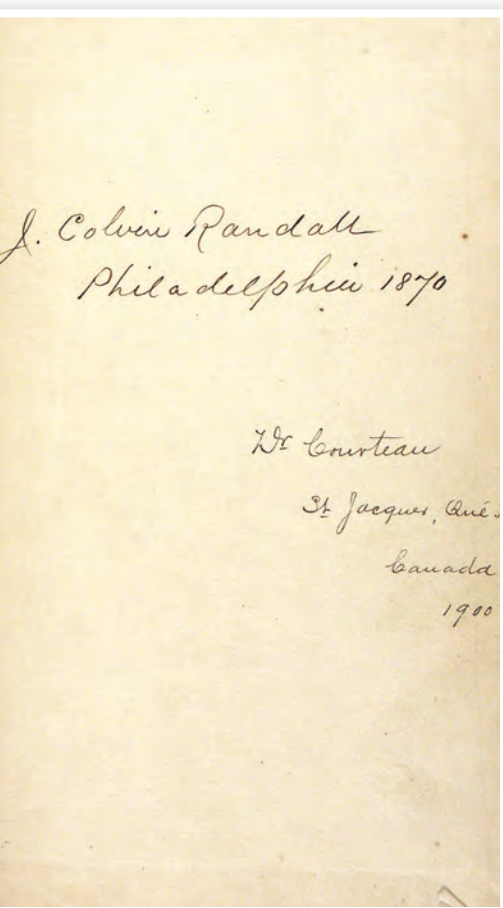 J. Colvin Randall
Philadelphia 1870
Dr Courteau
St Jacques, Qué.
Canada
1900